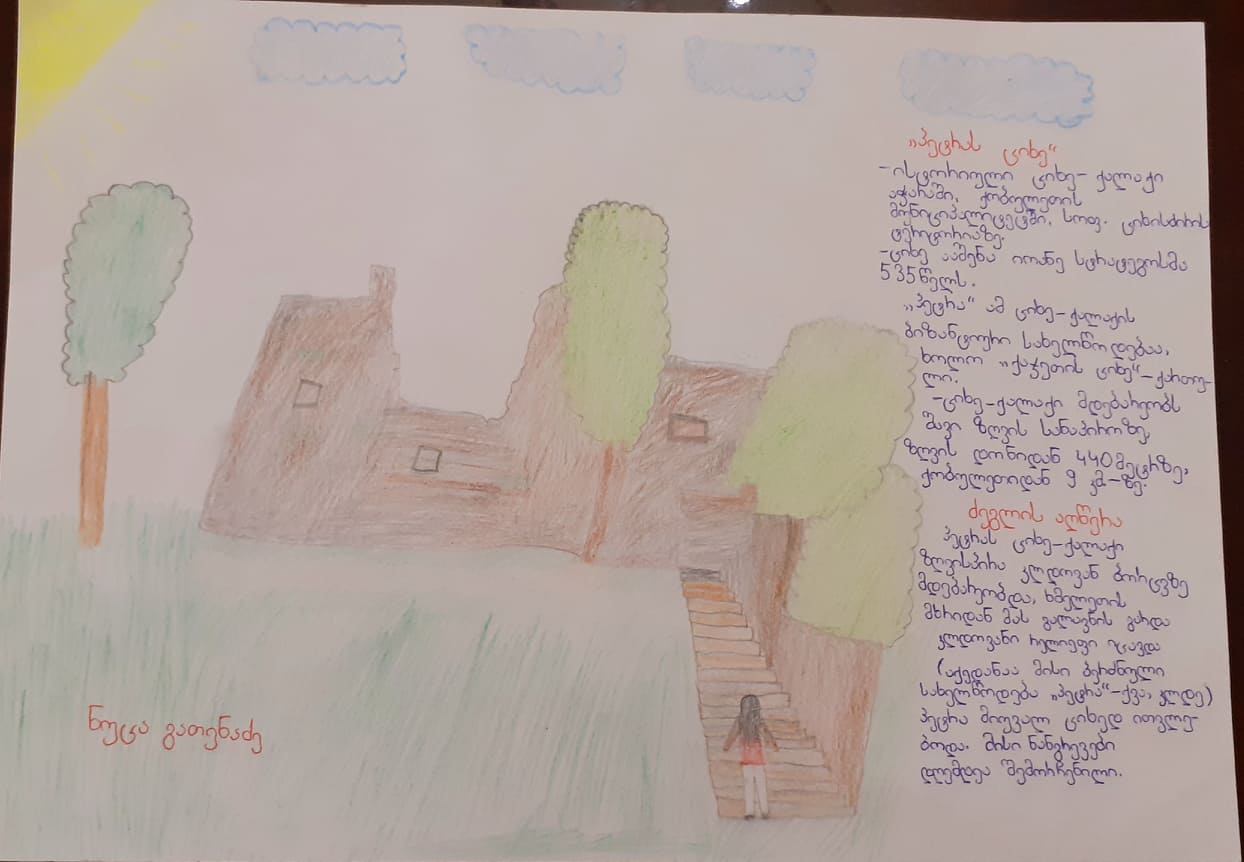 „პეტრას ციხე“
-ისტორიული ციხე-ქალაქი
აჭარაში, ქობულეთის
მუნიციპალიტეტში, სოფ. ციხისძირის
ტერიტორიაზე.
-ციხე ააშენა იოანე სტრატეგოსმა
535წელს.
„პეტრა“ ამ ციხე-ქალაქის
ბიზანტიური სახელწოდებაა,
ხოლო „ქაჯეთის ციხე“-ქართუ-
ლი.
-ციხე-ქალაქი მდებარეობს
შავი ზღვის სანაპიროზე,
ზღვის დონიდან 440მეტრზე,
ქობულეთიდან 9 კმ-ზე.
ძეგლის აღწერა
პეტრას ციხე-ქალაქი
ზღვისპირა კლდოვან ბორცვზე
მდებარეობდა, ხმელეთის
მხრიდან მას გალავნის გარდა
კლდოვანი რელიეფი იცავდა
(აქედანაა მისი ბერძნული
სახელწოდება „პეტრა“-ქვა, კლდე)
პეტრა მიუვალ ციხედ ითვლე-
ბოდა. მისი ნანგრევები
დღემდეა შემორჩენილი.
ნუცა გათენაძე